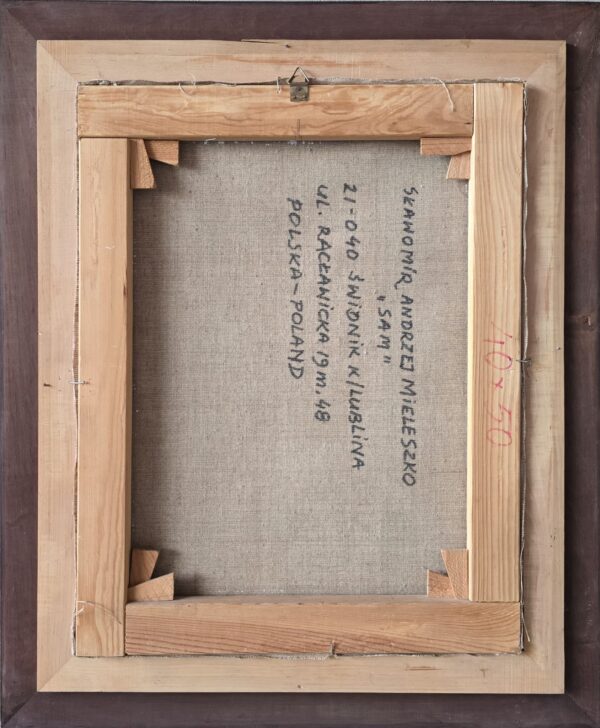 SŁAWOMIR ANDRZEJ MIELESZKO
„SAM"
21-040 ŚWIDNIK K/LUBLINA
UL. RACŁAWICKA 19 m. 48
POLSKA - POLAND
40 x 50